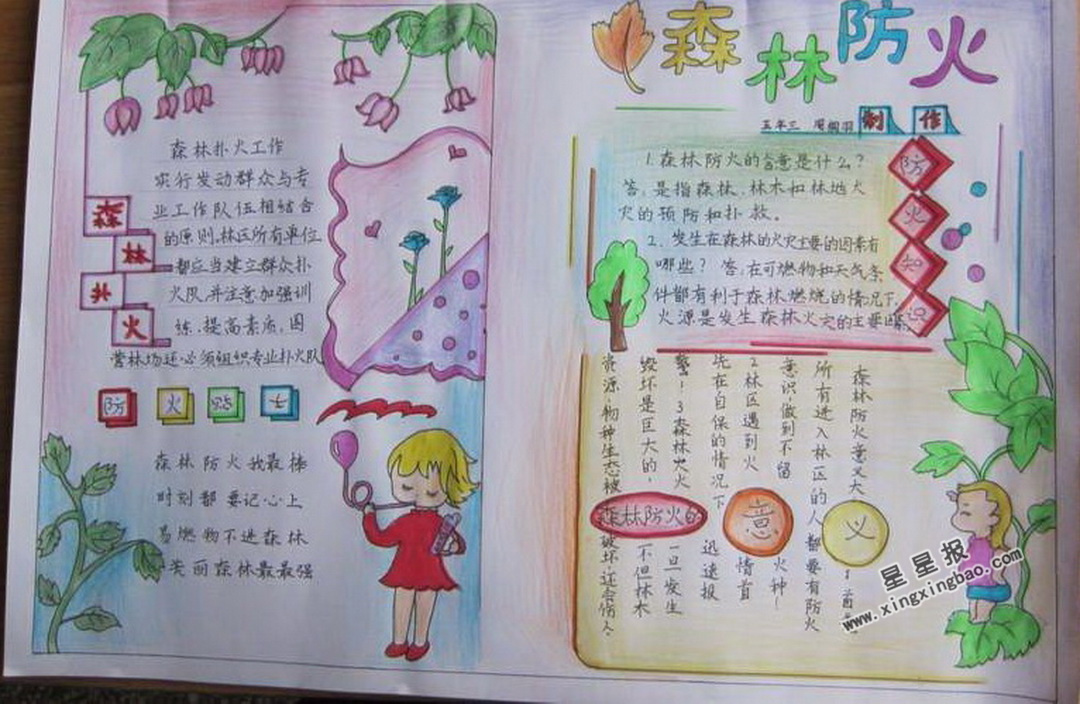 森林防火
五年三
制作
防火知识
1.森林防火的含意是什么?
答:是指森林、林木和林地火
灾的预防和扑救。
2、发生在森林的火灾主要的因素有
哪些?答:在可燃物和天气条
件都有利于森林燃烧的情况下,
火源是发生森林火灾的主要因素
森林扑火
森林扑火工作
实行发动群众与专
业工作队伍相结合
的原则,林区所有单位
都应当建立群众扑
火队,并注意加强训
练,提高素质,国
营林场还必须组织专业扑火队
防火贴士
森林防火我最棒
时刻都要记心上
易燃物不进森林
美丽森林最最强
森林防火的
意
义
森林防火意义大
1首先
所有进入林区的人都要有防火
意识,做到不留火种!
2林区遇到火情首
先在自保的情况下迅速报
警!3森林火灾一旦发生
毁坏是巨大的,不但林木
资源,物种生态被破坏,还会伤人.
星星报
www.xingxingbao.com